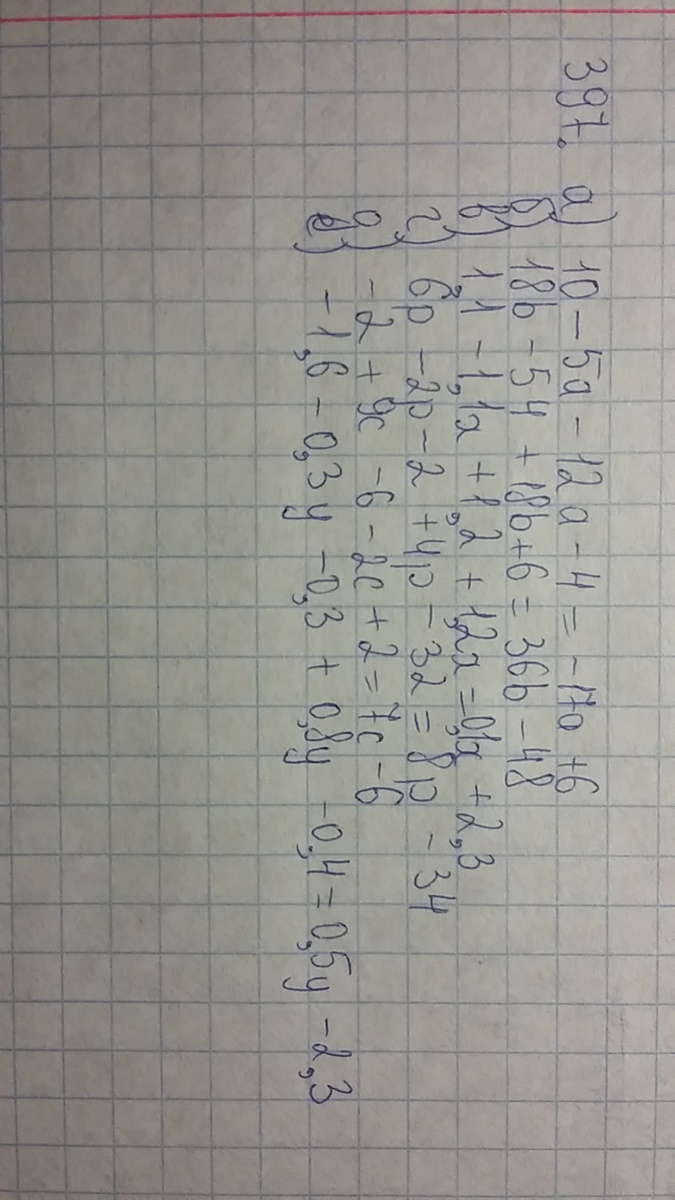 397. а) 10 - 5a - 12a - 4 = -17a + 6
б) 18b - 54 + 18b + 6 = 36b - 48
в) 1,1 - 1,1x + 1,2 + 1,2x = 0,1x + 2,3
г) 6p - 2p - 2 + 4p - 32 = 8p - 34
д) -2 + 9c - 6 - 2c + 2 = 7c - 6
е) -1,6 - 0,3y - 0,3 + 0,8y - 0,4 = 0,5y - 2,3